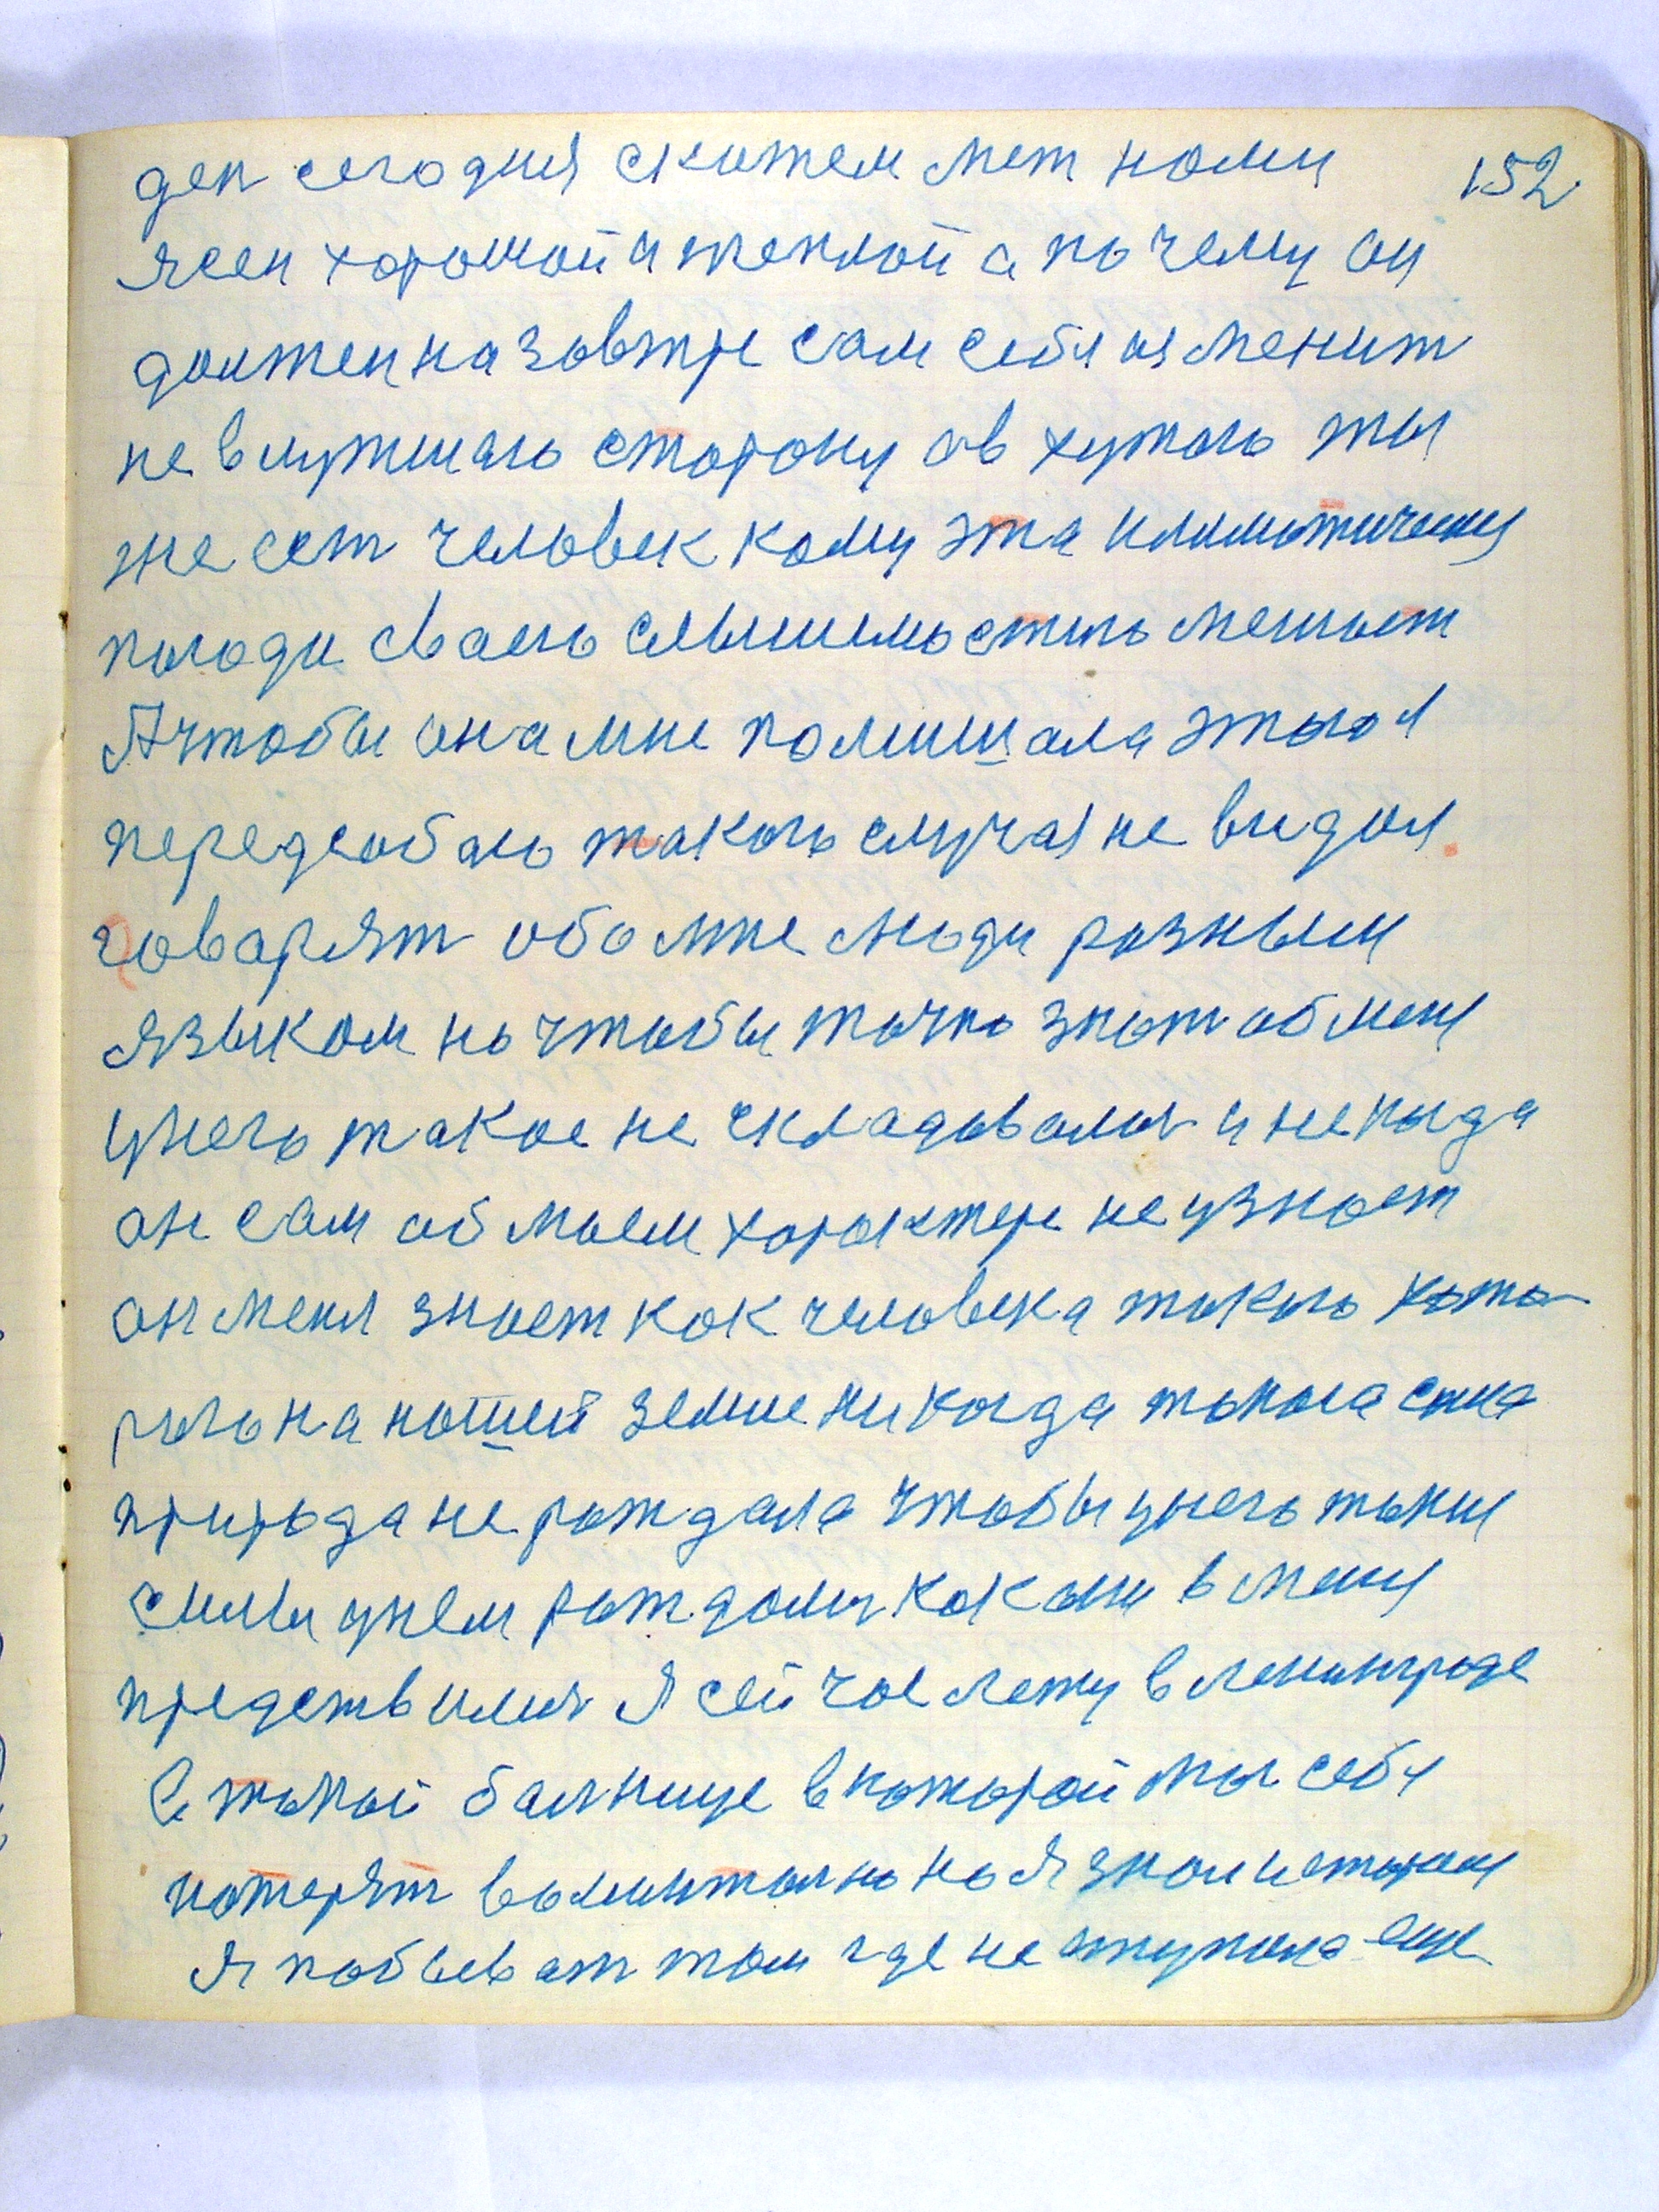 152
ден сегодня скажем мет нами
ясен хорошой и теплой а почему он
должен на завтре сам себя изменит
не влутшаю сторону ав хутшаю ты
же ест человек кому эта климатическия
погоди сваею слышемостию мешает
А чтобы она мне помишала этого я
перед собаю такого случая не видол.
говарят обо мне люди разным
языком но чтобы точно знат об мене
унего такое не складовалия и некогда
он сам об моем характере не узноет
он меня знает как человека такого кото
рого на нашей земле никогда такога сила
природа не рождала чтобы унего такия
силы унем рождолис как они в мене
предствилис Я сейчас лежу в ленинграде
в такой балнице в которой мы себя
потерят вомитално но я знаю историю
я побывават там где не ступала еще